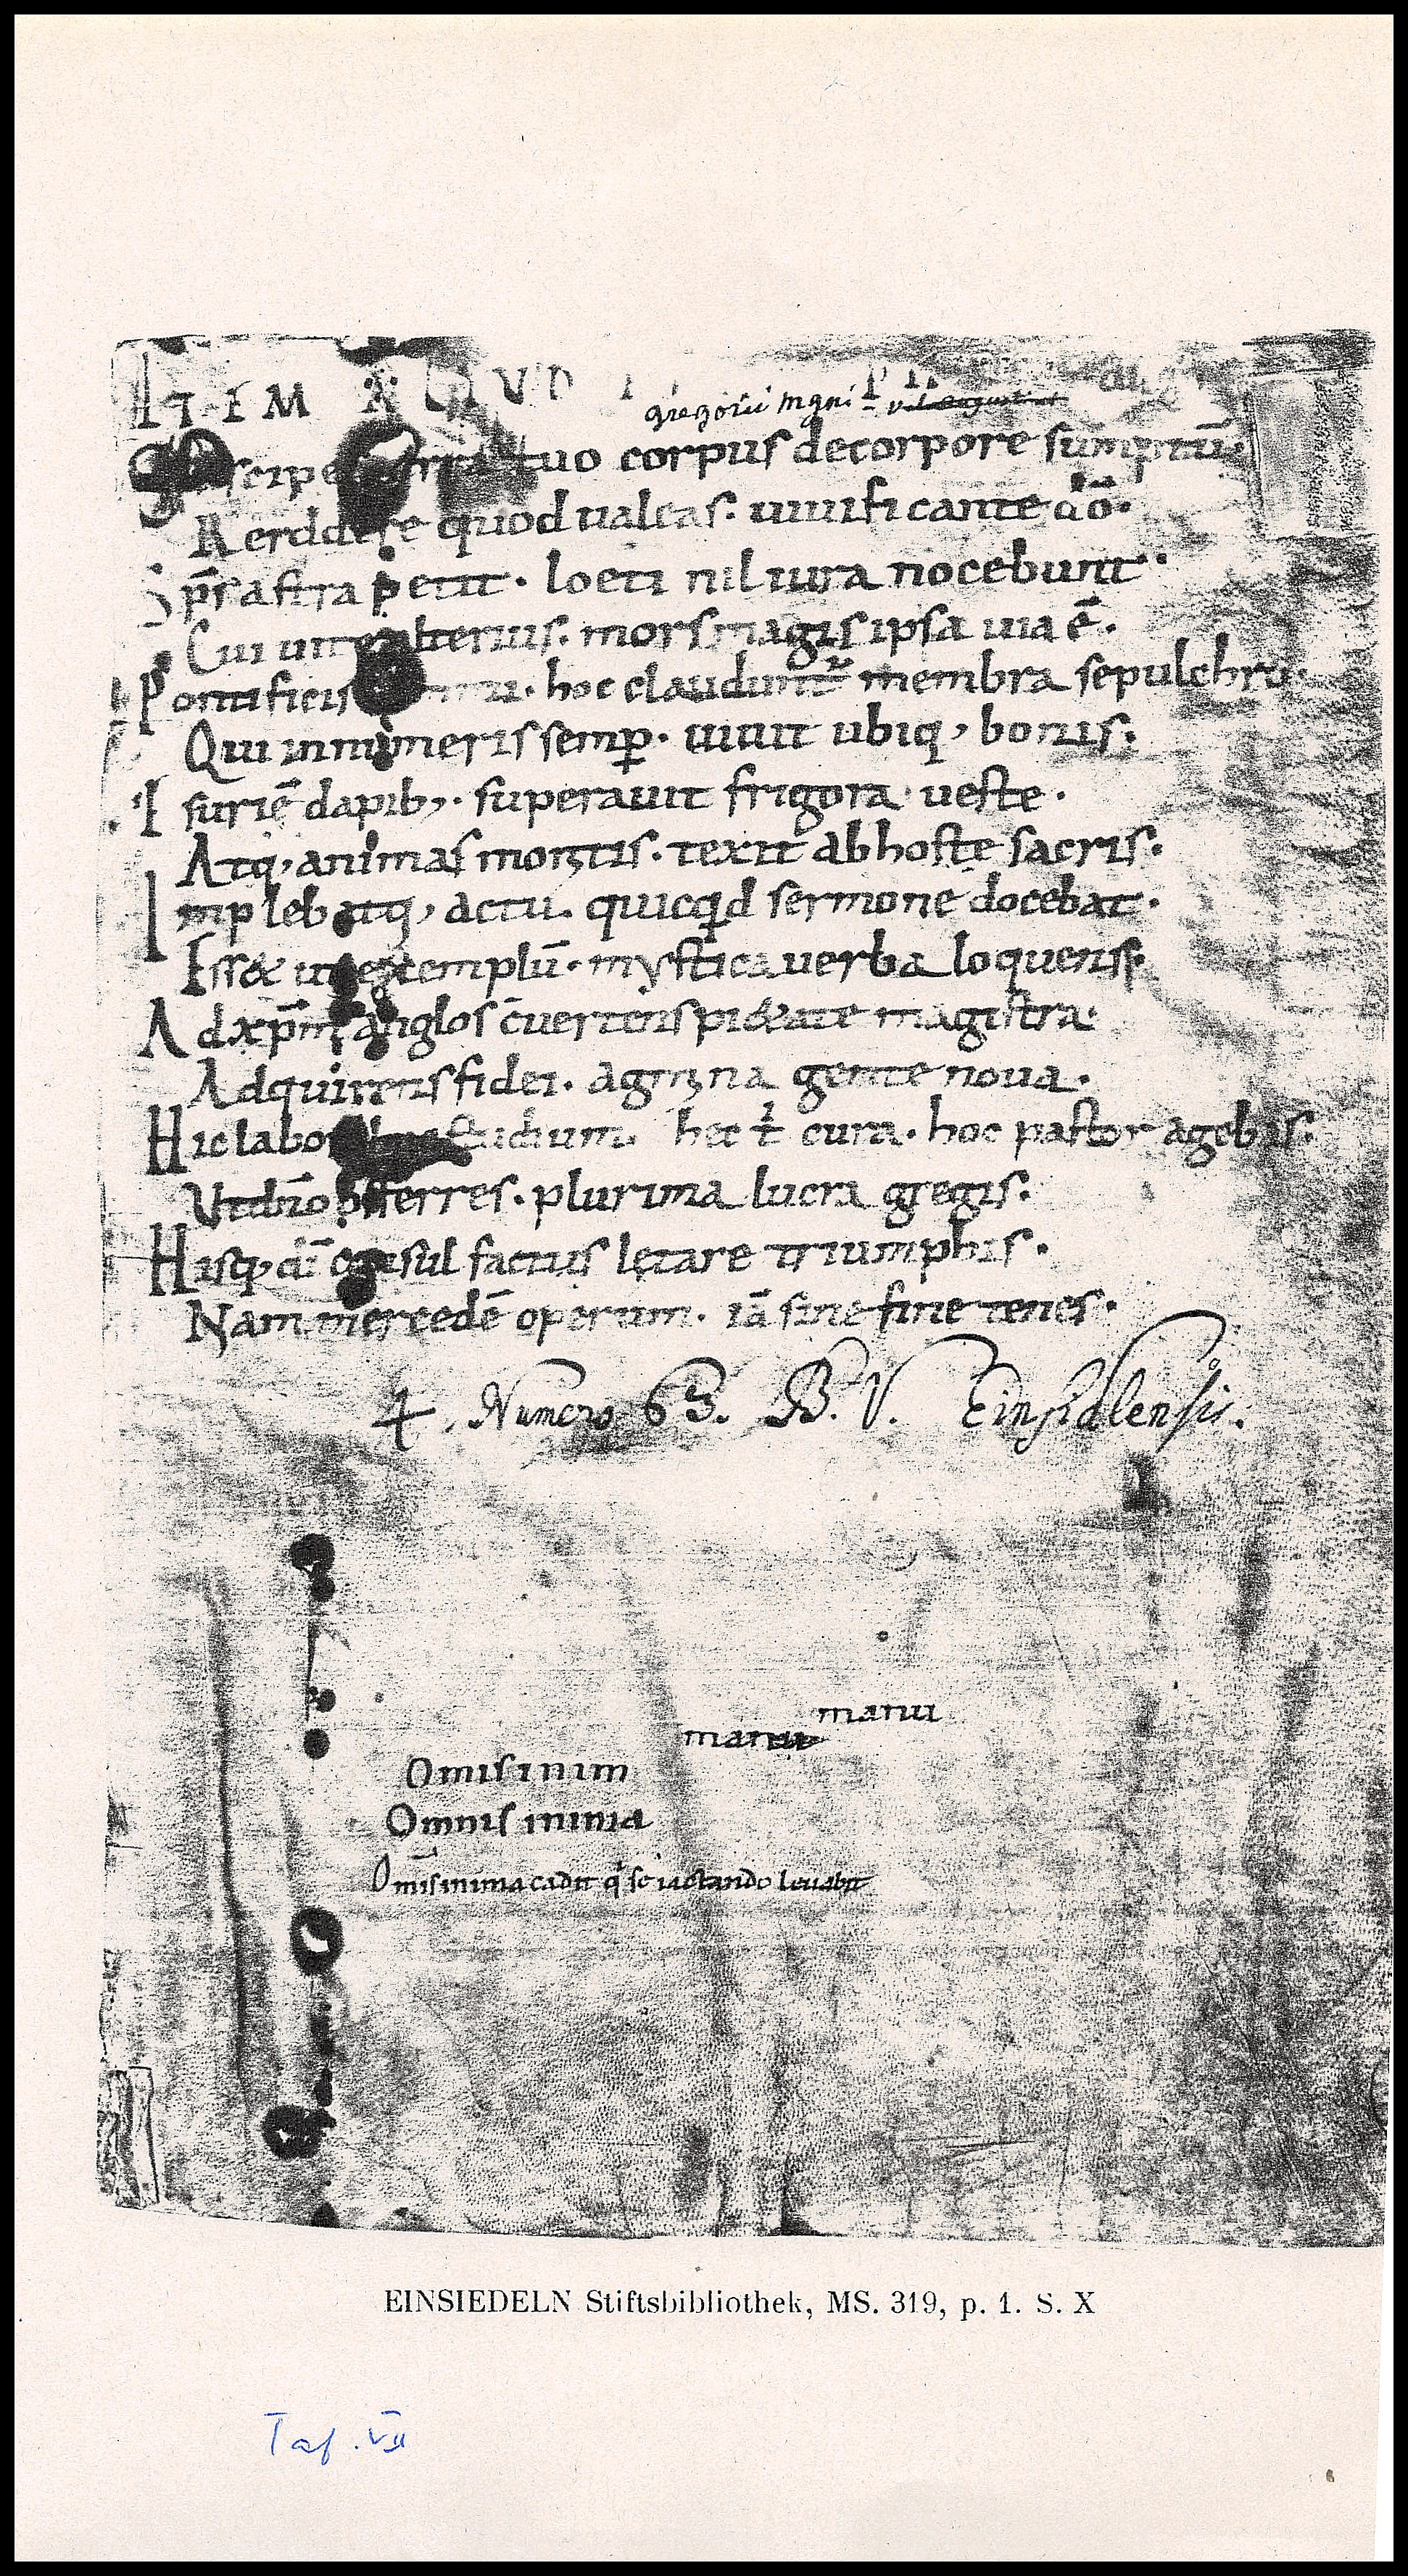 ITEM ALIUD
gregorii magni vel augustini
Suscipe terra tuo corpus decorpore sumptū·
Rerddere quod ualeas· uiuificante dō·
Sp̄s astra petit· loeti nil iura nocebunt·
Cui uite alterius· mors magis ipsa uia ē·
Pontificis summi· hoc claudunt᷑ membra sepulchro·
Qui innumeris semp̱· uiuit ubiq, bonis·
Esuriē dapib,· superauit frigora ueste·
Atq, animas monitis· texit ab hoste sacris·
Implebatq, actu· quicqd sermone docebat·
Ess& ut extemplū· mystica uerba loquens·
Ad xp̄m anglos c̄uertens pi&ate magistra·
Adquirens fidei· agmina gente noua·
Hic labor hoc studium hec t cura· hoc pastor agebas·
Ut dn̄o offerres· plurima lucra gregis·
Hisq, dī consul factus lętare triumphis·
Nam mercedē operum· iā sine fine tenes·
4. Numero 63. B. V. Einsidlensis.
manu
manu
Omis inim
Omnis inima
Om̄is inima cadit q se iactando leuabit
EINSIEDELN Stiftsbibliothek, MS. 319, p. 1. S. X
Taf. VII